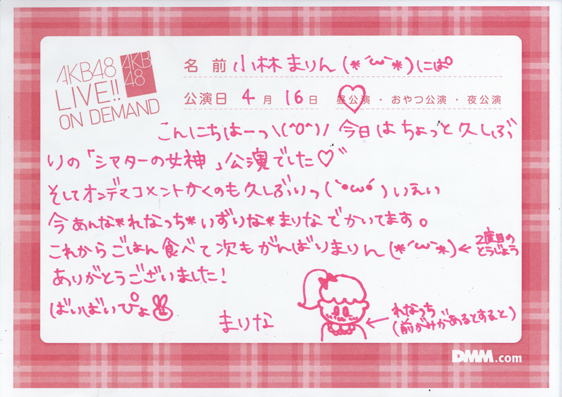 AKB48
LIVE!!
ON DEMAND
AKB
48
名前 小林まりん(*´ω`*)にぱ°
公演日 4月16日 昼公演・おやつ公演・夜公演
こんにちはーっ\(^o^)/ 今日はちょっと久しぶ
りの「シアターの女神」公演でした♡
そしてオンデマコメントかくのも久しぶりっ(`•ω•´)いえい
今あんな*れなっち*いずりな*まりなでかいてます。
これからごはん食べて次もがんばりまりん(*´ω`*)← 2度目の
とうじょう
ありがとうございました!
ばいばいぴょ
まりな
← れなっち
(前がみがあるとすると)
DMM.com